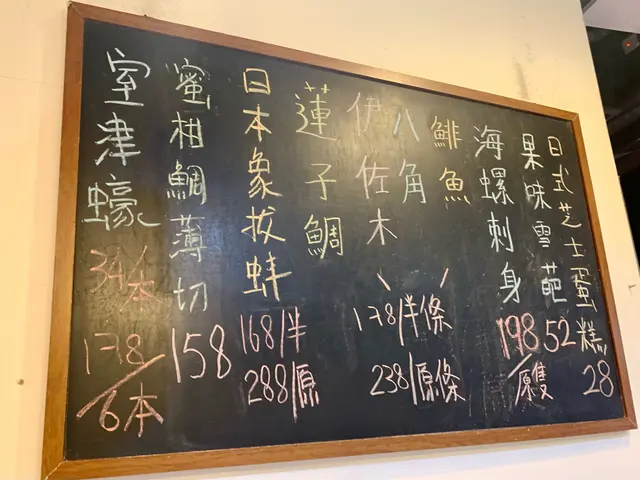 日式芝士蛋糕 28
果味雪葩 52
海螺刺身 198/原隻
鯡魚
八角
伊佐木
蓮子鯛
178/半條
238/原條
日本象拔蚌 168/半
288/原
蜜柑鯛薄切 158
室津蠔 34/本
178/6本